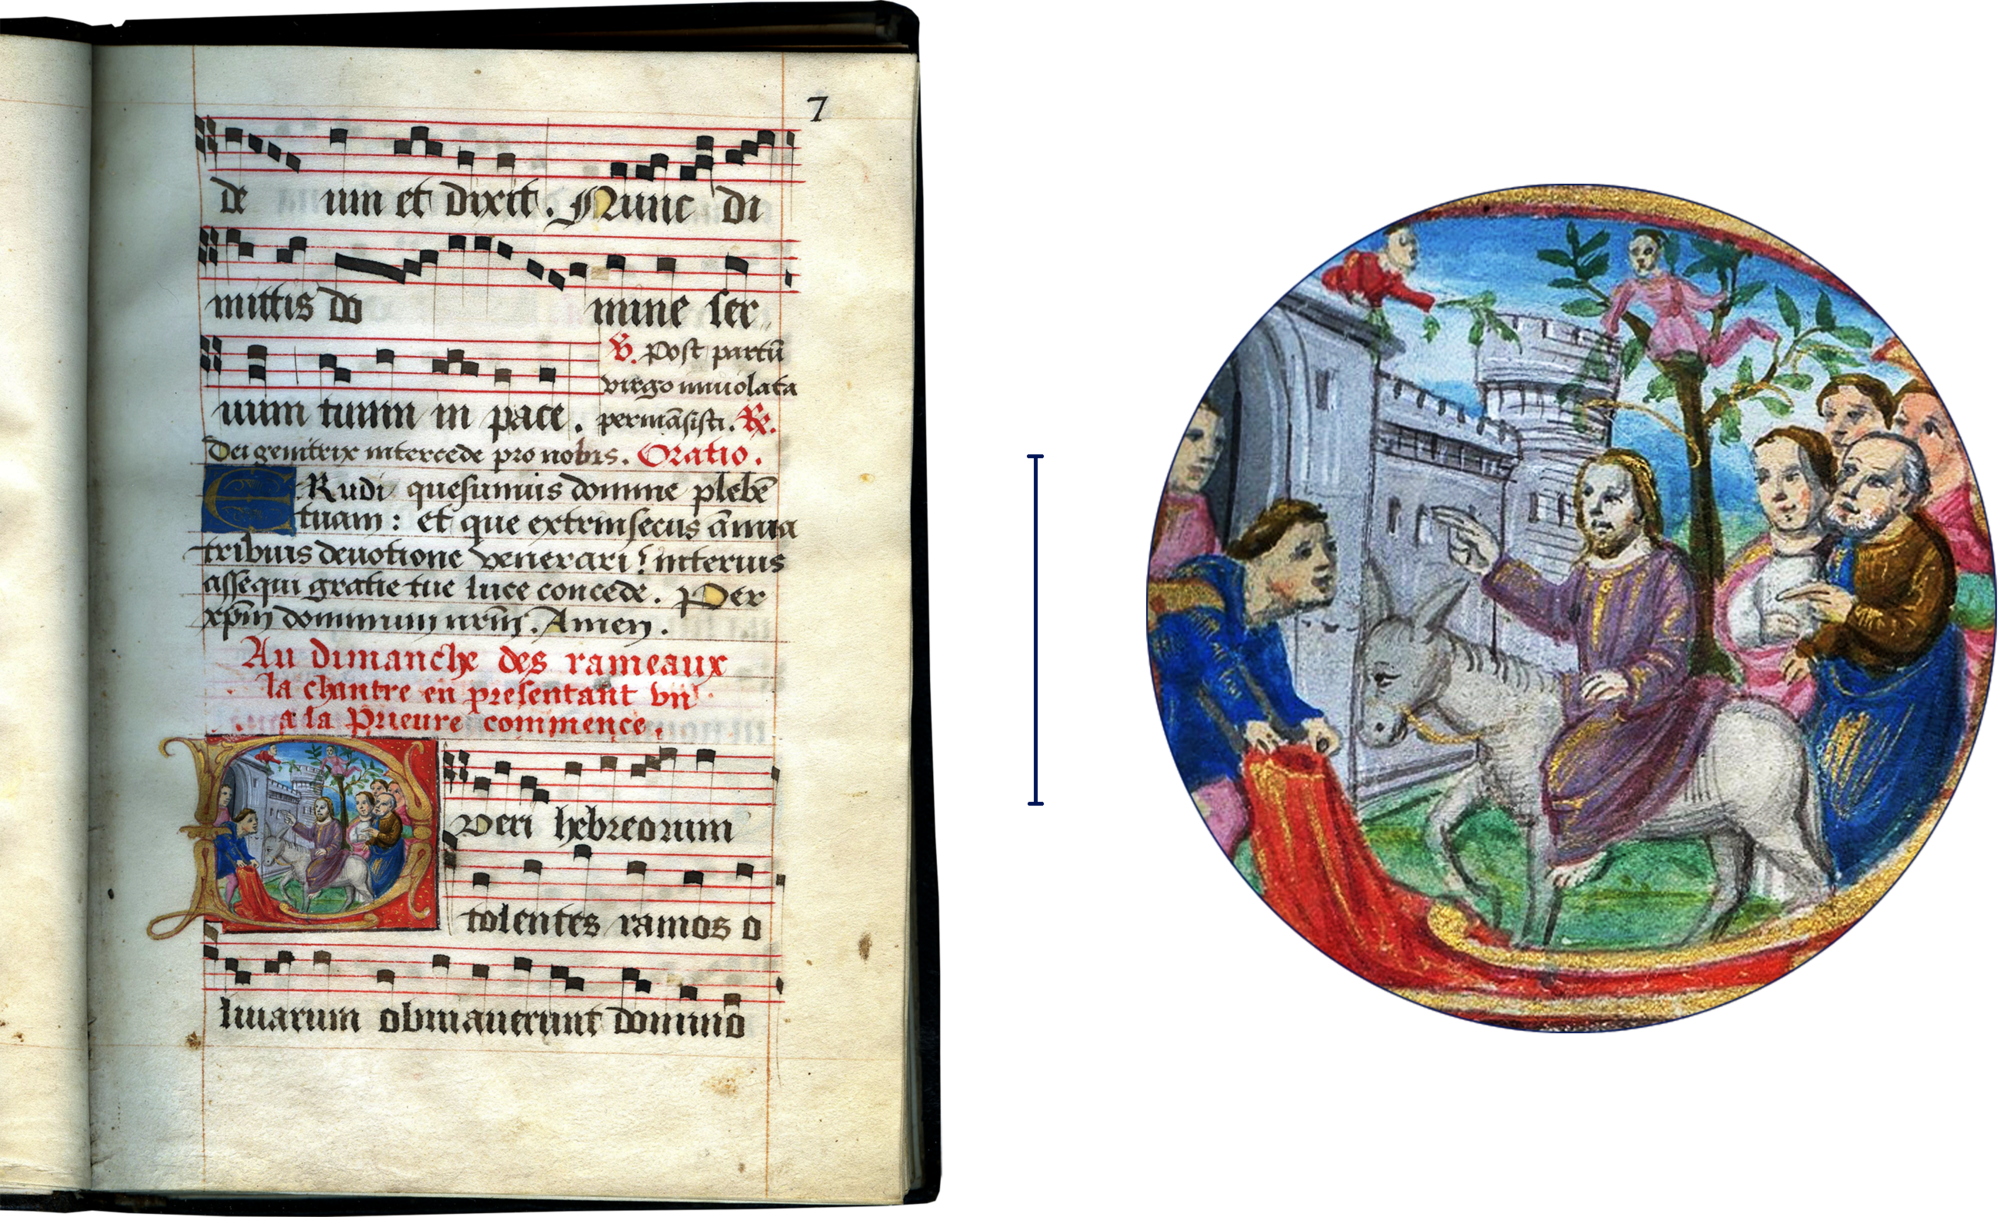 7
de um et dixit. Nunc di
mittis do mine ser
℣. Post partū
virgo inviolata
uum tuum in pace. permāsisti. ℟.
Dei genitrix intercede pro nobis. Oratio.
ERudi quesumus domine plebē
tuam: et que extrinsecus ānua
tribuis devotione venerari! interius
assequi gratie tue luce concede. Per
xp̄m dominum nr̄m. Amen.
Au dimanche des rameaux
la chantre en presentant vn
a la Prieure commence.
Pueri hebreorum
tolentes ramos o
liuarum obuiauerunt domino